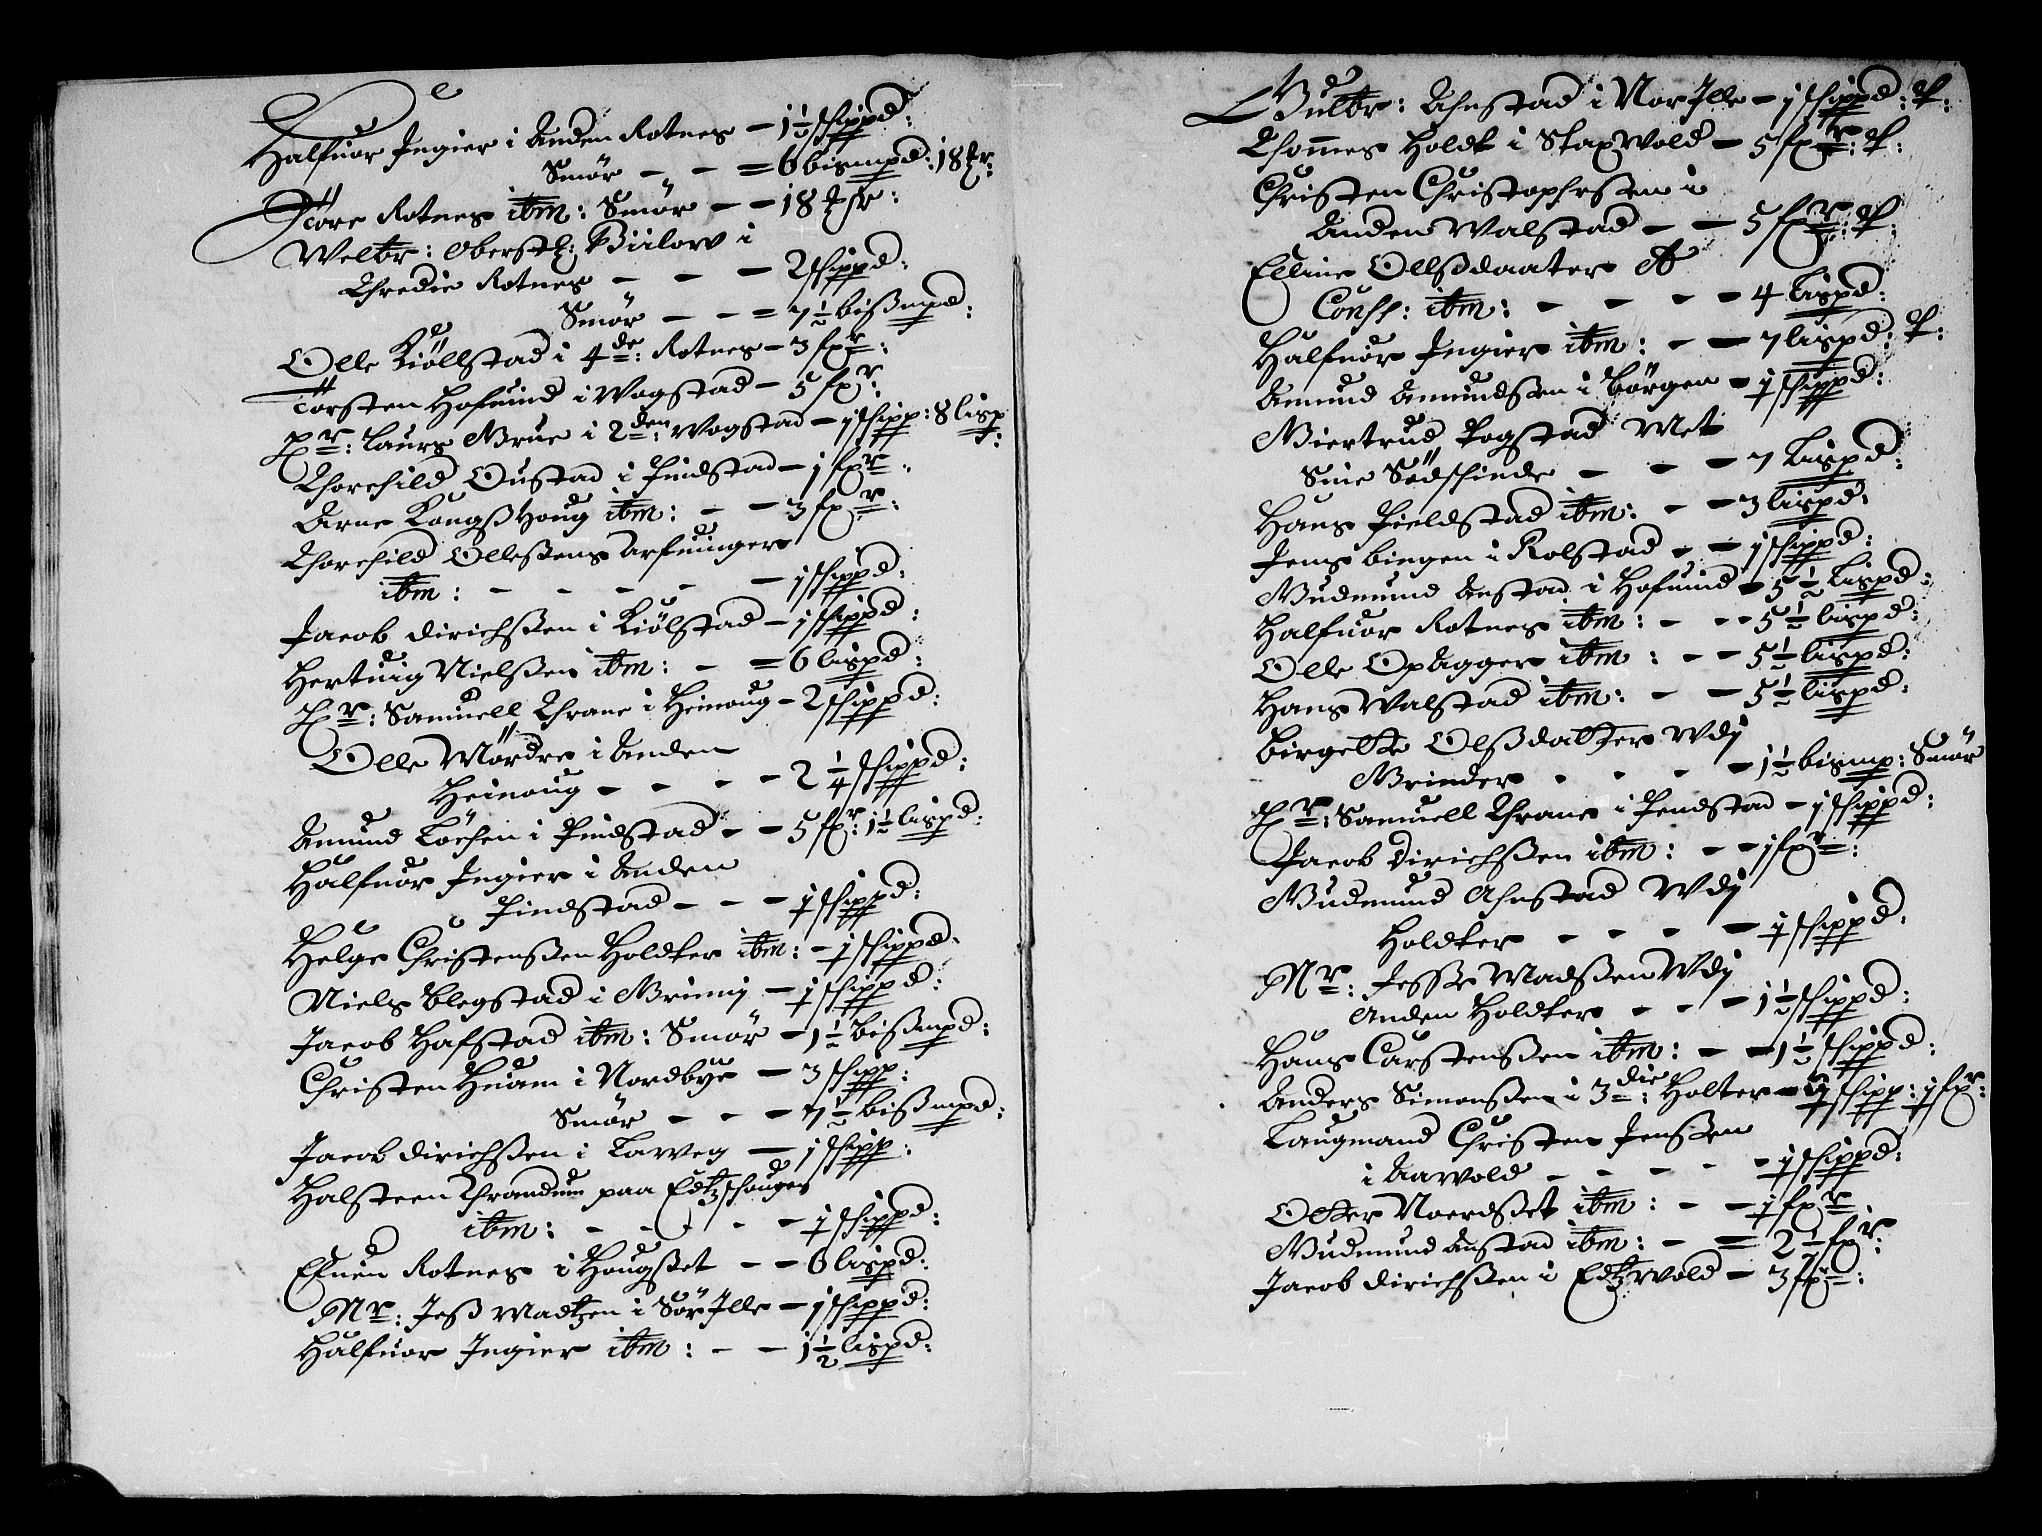 Halfuor Ingier i Anden Rotnes – 1½ schippd:
Smör – – = 6 bismpd: 18 mr:
Tore Rotnes itm: Smör – – 18 mr:
Welbr: Oberstl: Biilow i
Thredie Rotnes – – – 2 schippd:
Smör – – = 7½ bißmpd:
Olle Kiöllstad i 4de: Rotnes – 3 fxr:
Torsten Hofuind i Wogstad – 5 fxr:
Hr: Laurs Brue i 2den: Wogstad – 1 schipp: 8 lisp
Thorchild Oustad i Findstad – 1 fxr:
Arne Kongßhoug itm: – – 3 fxr:
Thorchild Olleßens Arfuinger
itm: – – – – – 1 schippd:
Jacob Dirichßen i Kiölstad – 1 schippd:
Hertuig Nielßen itm: – = 6 lispd:
Hr: Samuell Thrane i Heinoug – 2 schippd:
Olle Mördre i Anden
Heinoug – – – – 2¼ schippd:
Amund Löchen i Findstad – – 5 fxr: 1½ lispd:
Halfuor Ingier i Anden
Findstad – – – 1 schippd:
Helge Christenßen Holdter itm: – 1 schippd:
Niels Blegstad i Grinnj – 1 schippd:
Jacob Hafstad itm: Smör – 1½ bißmpd:
Christen Huam i Nordbye – 3 schipp:
Smör – – – 7½ bißmpd:
Jacob Dirichßen i Larveg – 1 schipp:
Halsteen Thrandum paa Edtzschougen
itm: – – – – – 1 schippd:
Efuen Rotnes i Hougßet – – 6 lispd:
Mr: Jeß Madtzen i Sör Ille – 1 schippd:
Halfuor Ingier itm: – – 1½ lispd:
Gulbr: Ahnstad i Nor Ille – 1 schippd:
Thomes Holdt i StaxWold – 5 fxr:
Christen Christophersen i
Anden Walstad – – 5 fxr:
Elline Ollßdaater
Consh: itm: – – – – 4 lispd:
Halfuor Ingier itm: – – 7 lispd:
Amund Amundßen i Börgen – 1 schippd:
Giertrud Pogstad Met
Sine Södschinde – – – 7 lispd:
Hans Fieldstad itm: – – 3 lispd:
Jens Bingen i Kolstad – – 1 schippd:
Gudmund Anstad i Hofuind – 5½ lispd:
Halfuor Rotnes itm: – – 5½ lispd:
Olle Opagger itm: – – 5½ lispd:
Hans Walstad itm: – – 5½ lispd:
Birgette Olßdatter Wdj
Grinder – – – – 1½ bismp: Smör
Hr: Samuell Thrane i Fendstad – 1 schippd:
Jacob Dirichßen itm: – – 1 fxr:
Gudmund Ahnstad Wdj
Holdter – – – – 1 schippd:
Mr: Jesse Madßen Wdj
Anden Holdter – – – 1½ schippd:
Hans Carstenßen itm: – – 1½ schippd:
Anders Simonßen i 3die: Holter – 1 schipp: 1 fxr:
Laugmand Christen Jenßen
i Aawold – – – – – 1 schippd:
Otter Noerdßet itm: – – 1 fxr
Gudmund Anstad itm: – = 2½ fxr:
Jacob Dirichßen i Edtzwold – 3 fxr: